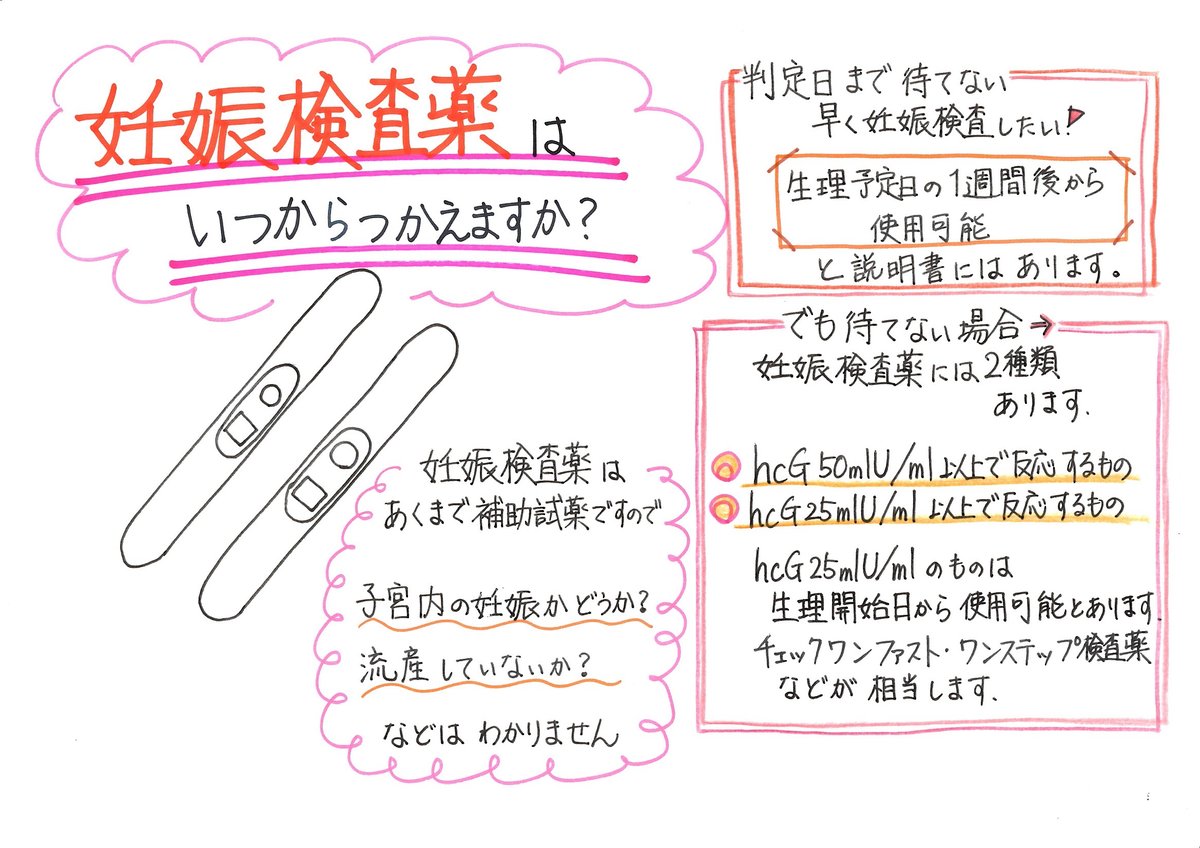 妊娠検査薬は
いつからつかえますか?
判定日まで待てない
早く妊娠検査したい!
生理予定日の1週間後から
使用可能
と説明書にはあります。
でも待てない場合→
妊娠検査薬には2種類
あります.
hcG50mIU/ml以上で反応するもの
hcG25mIU/ml以上で反応するもの
hcG25mIU/mlのものは
生理開始日から使用可能とあります.
チェックワンファスト・ワンステップ検査薬
などが相当します.
妊娠検査薬は
あくまで補助試薬ですので
子宮内の妊娠かどうか?
流産していないか?
などはわかりません